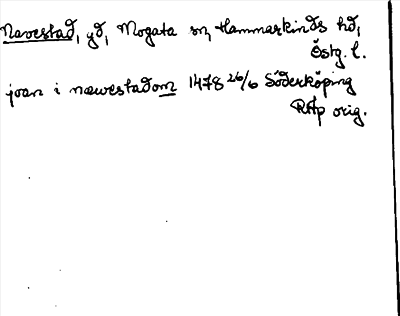 Navestad, yđ, Mogata sn, Hammarkinds hđ,
Östg. l.
joan i nawestadom 1478 26/6 Söderköping
RAp orig.